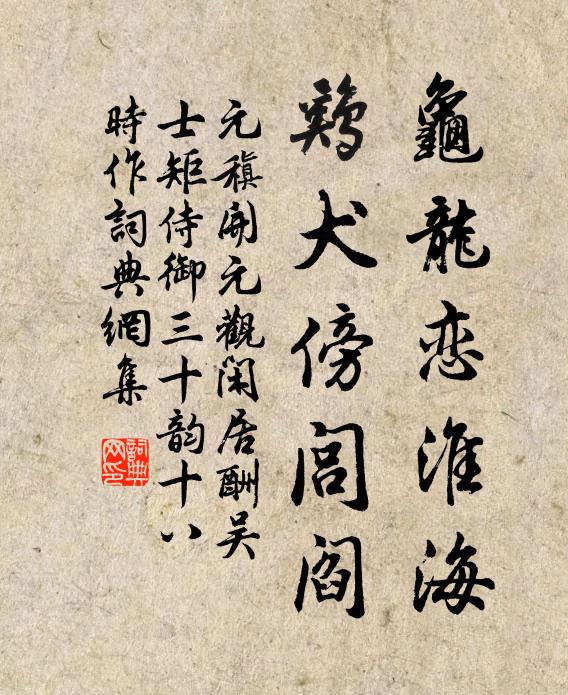 龜龍恋淮海
鷄犬傍閭阎
元稹開元觀閑居酬吴
士矩侍御三十韵十八
時作詞典網集
詞典网印